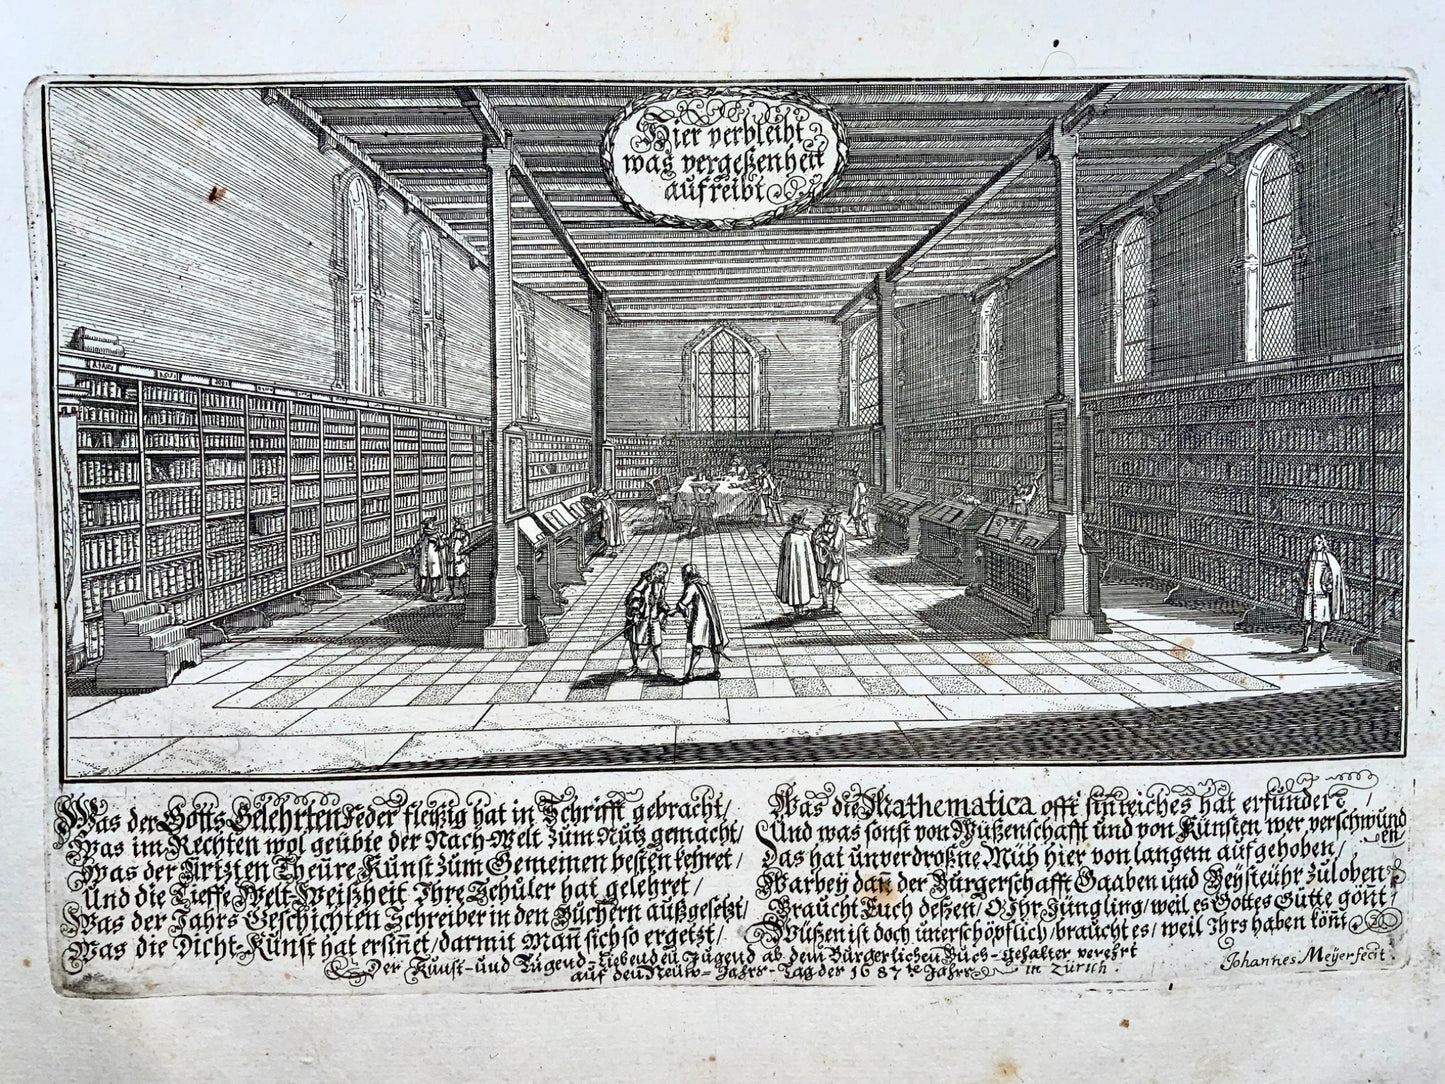 Hier verbleibt
was vergeßenheit
aufreibt
Was der Gotts-Gelehrten Feder fleißig hat in Schrifft gebracht/
Was im Rechten wol geübte der Nach-Welt zum Nutz gemacht/
Was der Artzten Theüre Kunst zum Gemeinen besten kehret/
Und die Tieffe Welt-Weißheit Ihre Schüler hat gelehret/
Was der Jahrs Geschichten Schreiber in den Büchern außgesetzt/
Was die Dicht-Kunst hat ersiñet/darmit Mañ sich so ergetzt/
Was die Mathematica offt sinreiches hat erfunden/
Und was sonst von Wüßenschafft und von Künsten wer verschwunden/
Das hat unverdroßne Müh hier von langem aufgehoben/
Warbey dañ der Bürgerschafft Gaaben und Beysteühr zuloben
Braucht Euch deßen/O Ihr Jüngling/weil es Gottes Gütte goñt/
Wüßen ist doch unerschöpflich/braucht es/weil Ihrs haben könt
Der Kunst-und Tugend-Liebenden Jugend ab dem Bürgerlichen Büch-gehalter verehrt
auf den Neuw-Jahrs-Tag der 1687 te Jahrs in Zürich.
Johannes Meyer fecit.